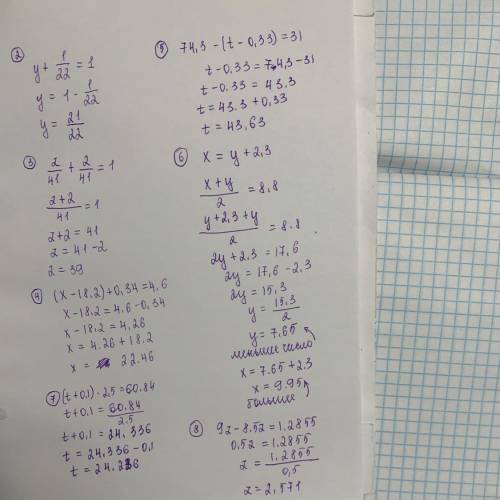 ②
y + 1/22 = 1
y = 1 - 1/22
y = 21/22
③
2/41 + 2/41 = 1
2+2/41 = 1
2+2 = 41
2 = 41-2
2 = 39
④ (x-18.2)+0,34=4,6
x-18.2=4.6-0.34
x-18.2=4,26
x = 4.26+18.2
x = 22.46
⑦ (t+0,1)·2,5=60.84
t+0.1 = 60.84/2,5
t+0.1 = 24,336
t = 24.336-0.1
t = 24.236
⑤ 74,3-(t-0,33)=31
t-0.33=74,3-31
t-0.33 = 43.3
t = 43.3+0,33
t = 43,63
⑥ x = y+2,3
x+y/2 = 8.8
y+2,3+y/2 = 8.8
2y+2,3 = 17,6
2y = 17,6-2,3
2y = 15,3
y = 15,3/2
y = 7,65
меньшее число
x = 7.65+2.3
x = 9.95
большее
⑧ 9z-8.5z=1,2855
0,5z = 1,2855
z = 1,2855/0,5
z = 2,571